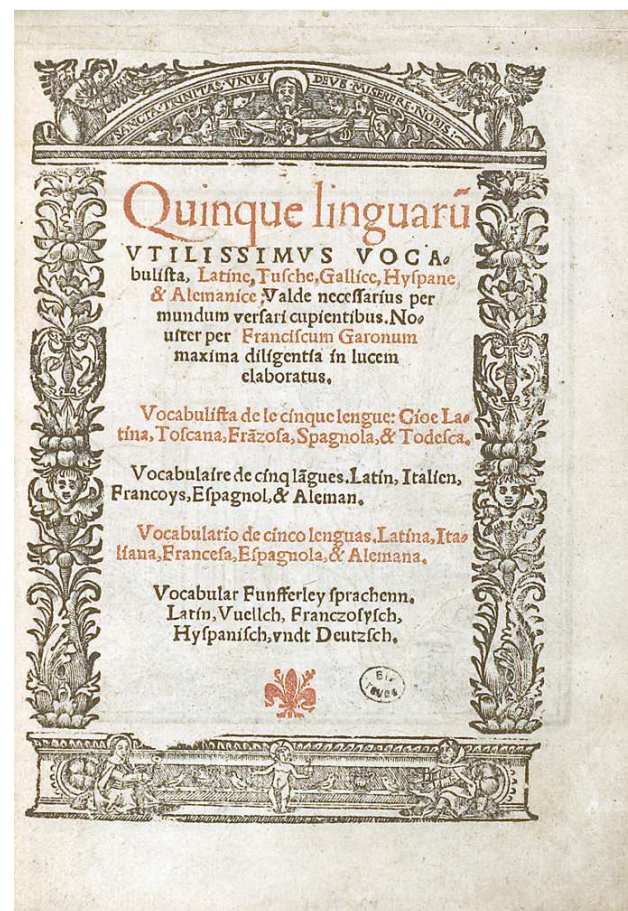 SANCTA·TRINITAS·VNVS· DEVS·MISERERE·NOBIS:
Quinque linguarū
VTILISSIMVS VOCA-
buliſta, Latine, Tuſche, Gallice, Hyſpane,
& Alemanice, Valde neceſſarius per
mundum verſari cupientibus. No-
uiter per Franciſcum Garonum
maxima diligentia in lucem
elaboratus.
Vocabuliſta de le cinque lengue: Cioe La-
tina, Toſcana, Frãzoſa, Spagnola, & Todeſca.
Vocabulaire de cinq lãgues. Latin, Italien,
Francoys, Eſpagnol, & Aleman.
Vocabulario de cinco lenguas. Latina, Ita-
liana, Franceſa, Eſpagnola, & Alemana.
Vocabular Funfferley ſprachenn.
Latin, Vuelſch, Franczoſyſch,
Hyſpaniſch, vndt Deutzſch.